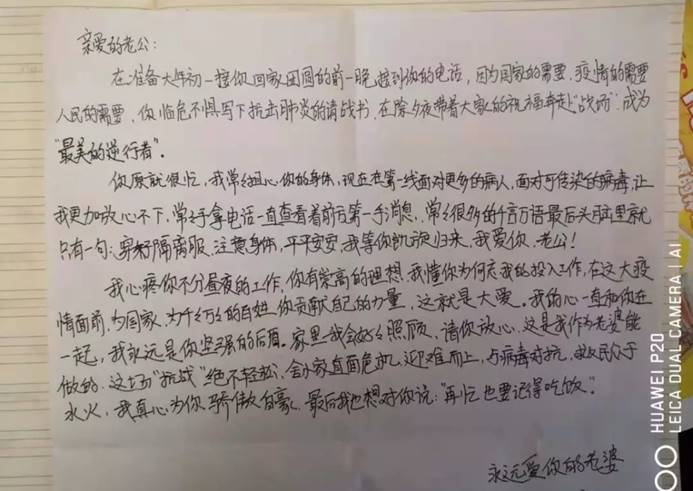 亲爱的老公:
在准备大年初一接你回家团圆的前一晚接到你的电话,因为国家的需要.疫情的需要
人民的需要,你临危不惧写下抗击肺炎的请战书.在除夕夜带着大家的祝福奔赴“战场”.成为
“最美的逆行者”.
你原就很忙,我常常担心你的身体,现在在第一线面对更多的病人,面对可传染的病毒,让
我更加放心不下,常常手拿电话一直查看着前方第一手消息,常常很多的千言万语最后头脑里就
只有一句:穿好隔离服.注意身体,平平安安.我等你凯旋归来,我爱你.老公!
我心疼你不分昼夜的工作,你有崇高的理想.我懂你为何忘我的投入工作,在这大疫
情面前,为国家.为千千万万的百姓.你贡献自己的力量.这就是大爱.我的心一直和你在
一起,我永远是你坚强的后盾.家里我会好好照顾.请你放心.这是我作为老婆能
做的.这场“抗战”绝不轻松,舍小家直面危机,迎难而上,与病毒对抗,救民众于
水火,我真心为你骄傲自豪.最后我也想对你说:“再忙也要记得吃饭”.
永远爱你的老婆
HUAWEI P20
LEICA DUAL CAMERA | AI